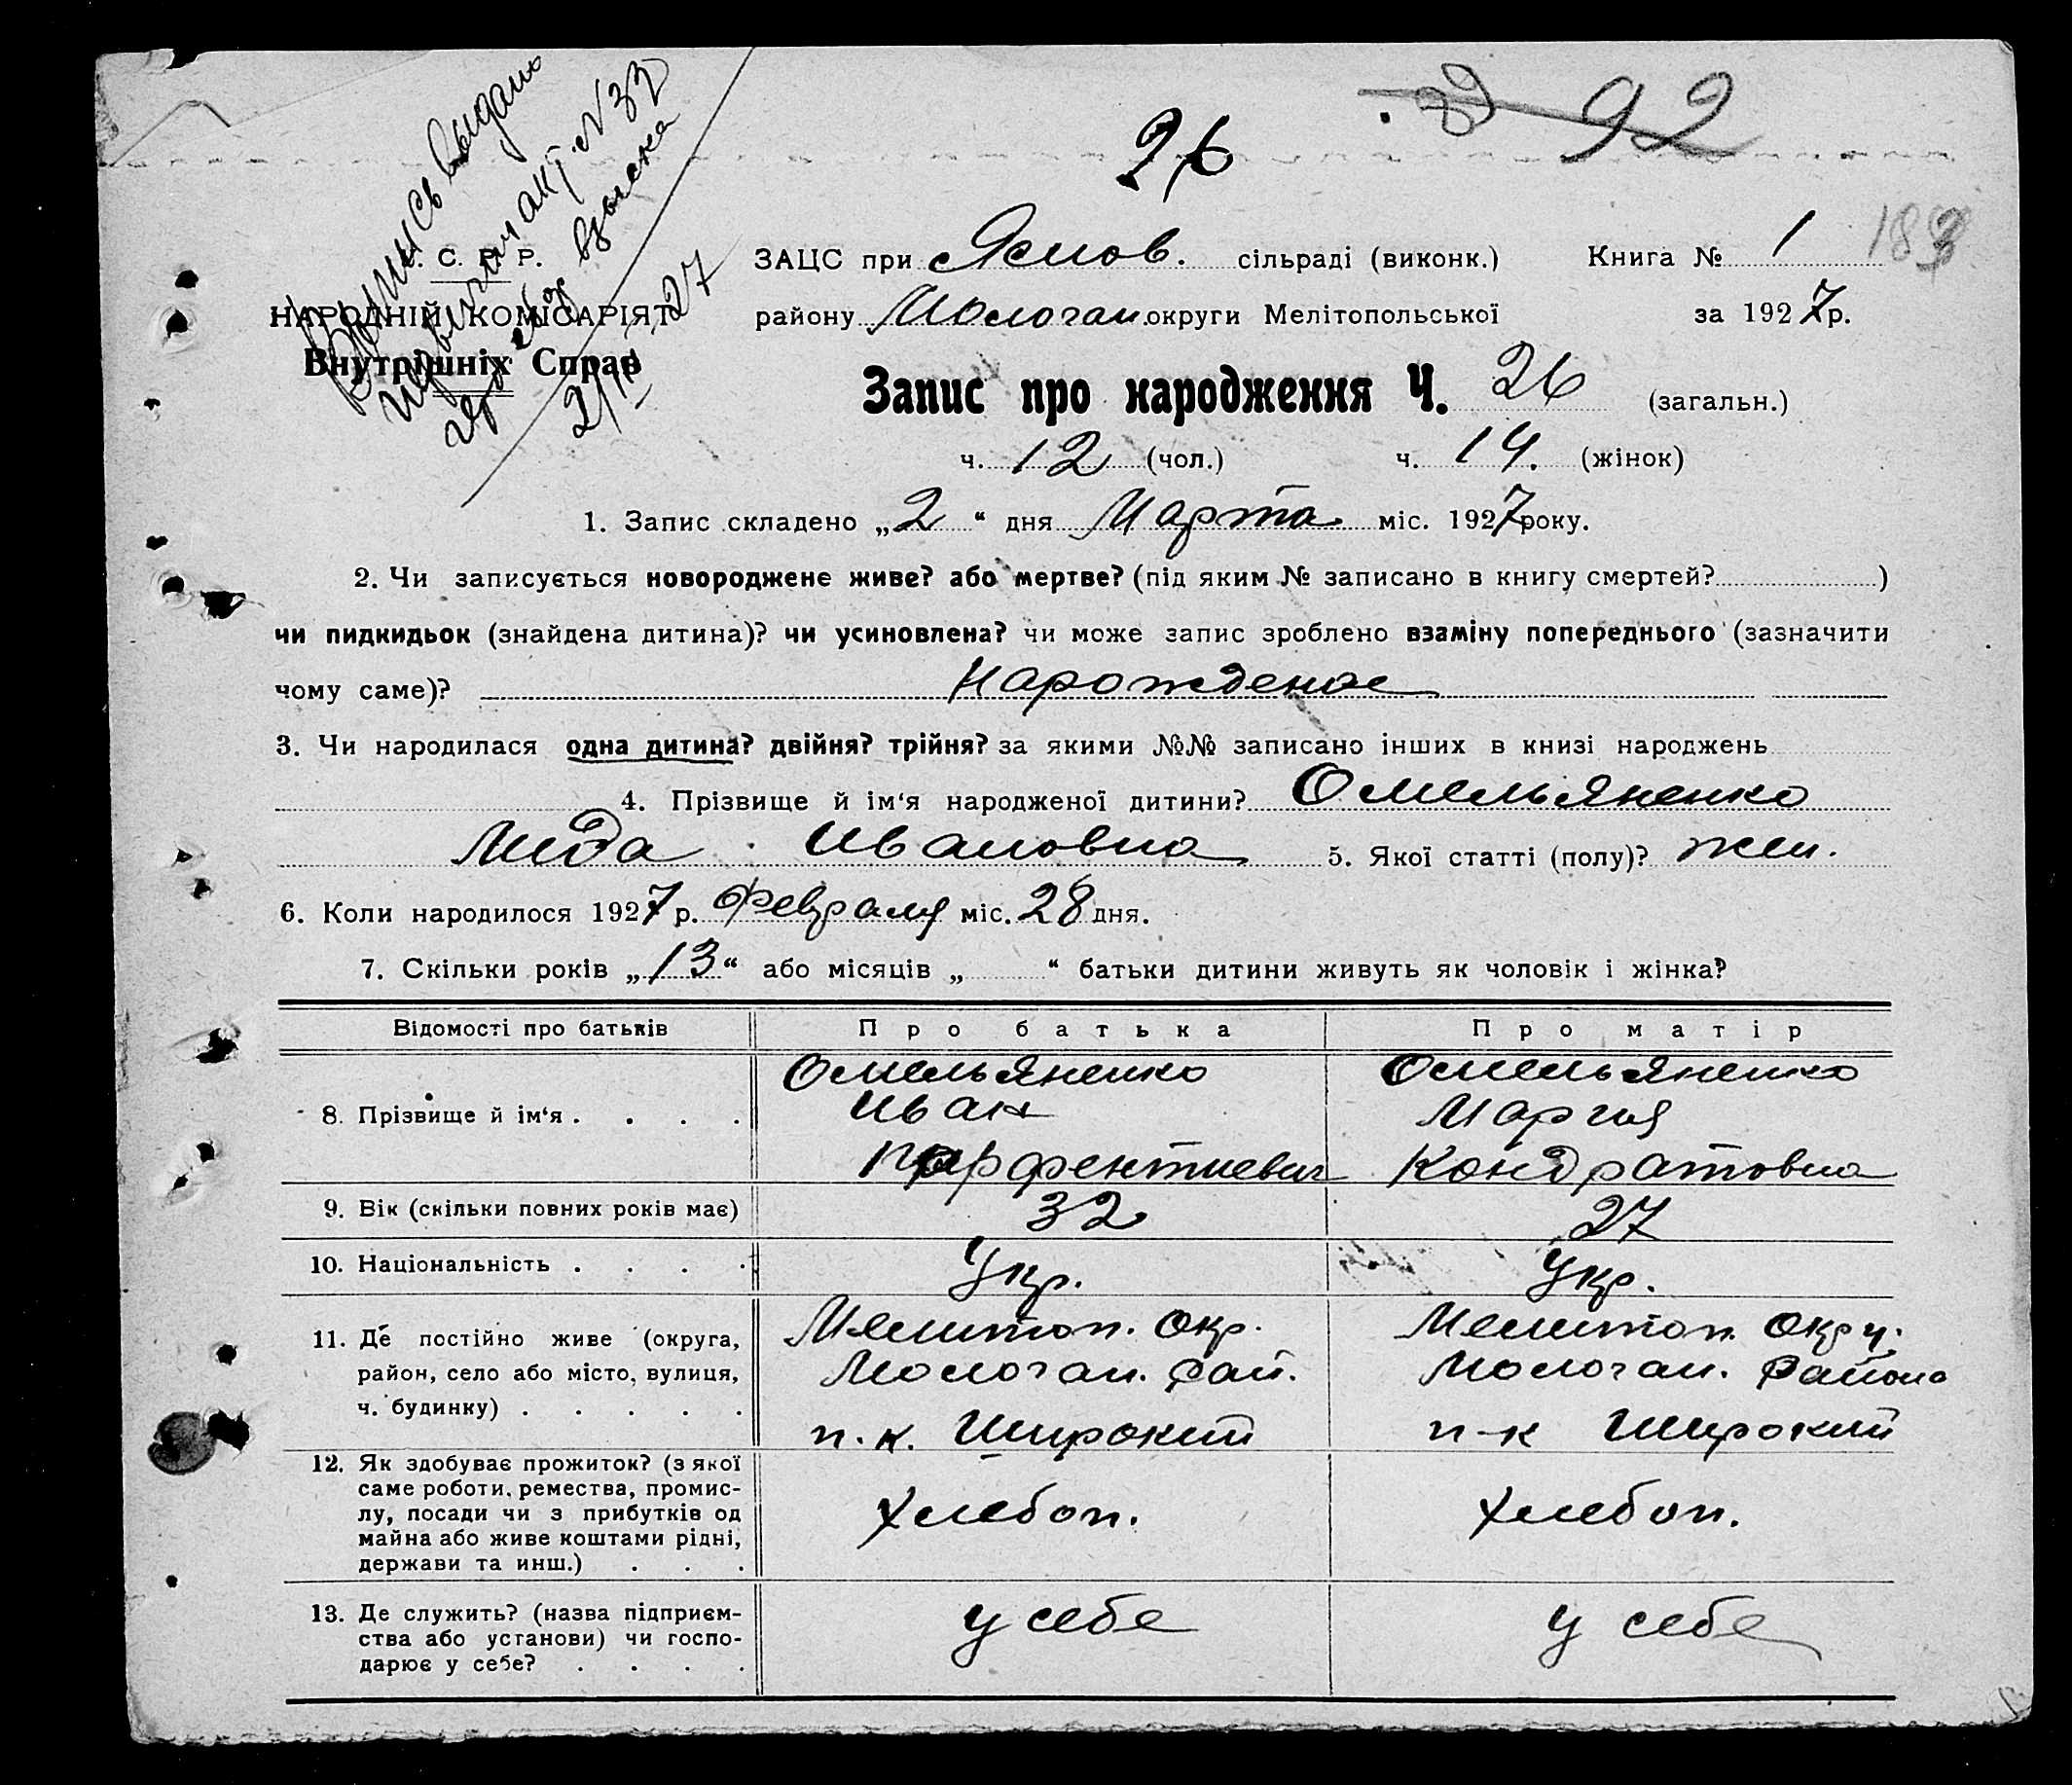 92
26
183
Выпись выдана
акт. N 32
взыска
2/III 27
У. С. Р. Р.
НАРОДНІЙ КОМІСАРІЯТ
Внутрішніх Справ
ЗАЦС при Ясинов. сільраді (виконк.) Книга № 1
району Молочан. округи Мелітопольської за 1927 р.
Запис про народження Ч. 26 (загальн.)
ч. 12 (чол.) ч. 14. (жінок)
1. Запис складено „2“ дня Марта міс. 1927 року.
2. Чи записується новороджене живе? або мертве? (під яким № записано в книгу смертей? )
чи пидкидьок (знайдена дитина)? чи усиновлена? чи може запис зроблено взаміну попереднього (зазначити
чому саме)? Нарожденое
3. Чи народилася одна дитина? двійня? трійня? за якими №№ записано інших в книзі народжень
4. Прізвище й ім‘я народженої дитини? Омельяненко
Лида Ивановна 5. Якої статті (полу)? жен.
6. Коли народилося 1927 р. Февраля міс. 28 дня.
7. Скільки років „13“ або місяців „ “ батьки дитини живуть як чоловік і жінка?
Відомості про батьків Про батька Про матір
8. Прізвище й ім‘я . . . . Омельяненко Иван Парфентиевич Омельяненко Мария Кондратовна
9. Вік (скільки повних років має) 32 27
10. Національність . . . . Укр. Укр.
11. Де постійно живе (округа, Мелитоп. Окр. Мелитоп. Окру.
район, село або місто, вулиця, Молочан. рай. Молочан. Района
ч. будинку) . . . . . п. к. Широкий п-к Широкий
12. Як здобуває прожиток? (з якої
саме роботи, ремества, промис-
лу, посади чи з прибутків од Хлебоп. Хлебоп.
майна або живе коштами рідні,
держави та инш.) . . .
13. Де служить? (назва підприєм- у себе у себе
ства або установи) чи госпо-
дарює у себе? . . . .